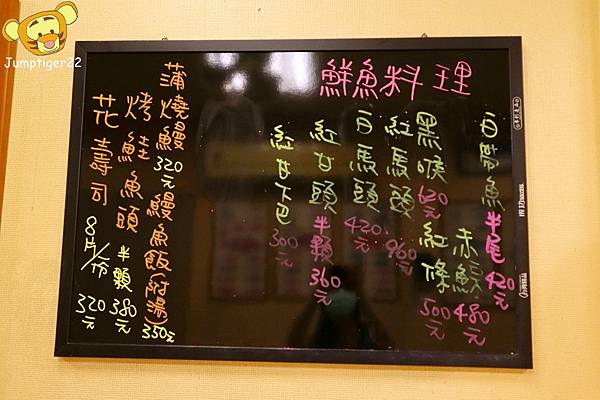 Jumptiger22
鮮魚料理
半尾 420元
赤鰻 480元
黑喉 620元
紅條 500元
紅須頭 960元
白須頭 420元
紅女頭 半顆 360元
紅女下巴 300元
蒲燒鰻 320元
鰻魚飯(附湯) 350元
烤鮭魚頭 半顆 380元
花壽司 8片/份 320元